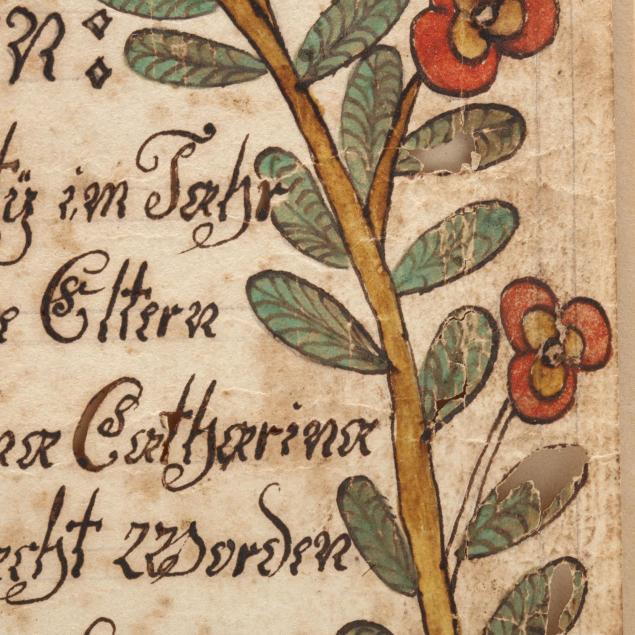 R:
tÿ im Jahr
e Eltern
na Catharina
echt Worden